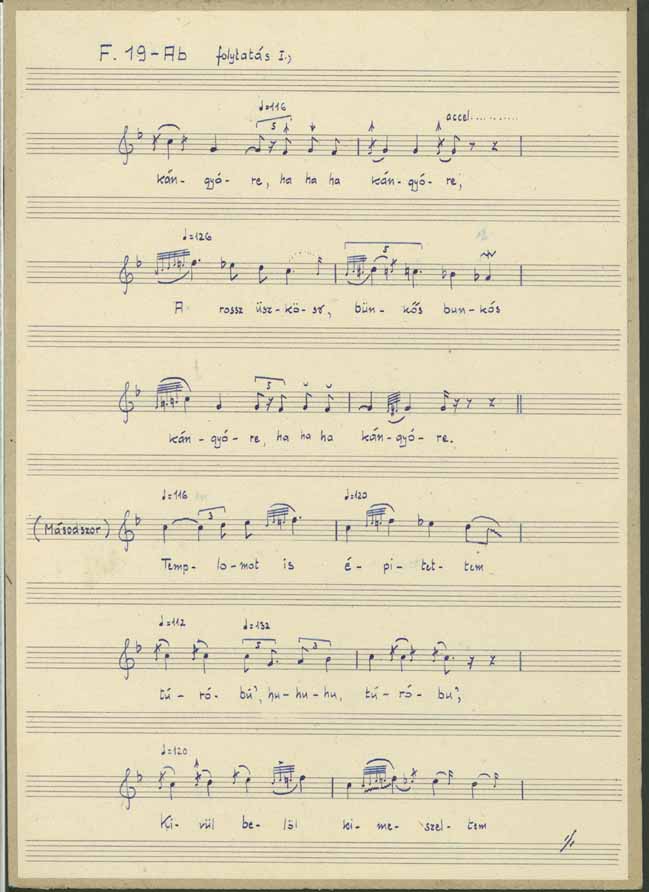 F. 19-Ab folytatás I.,
♩=116
5
accel..........
kán- gyó- re, ha ha ha kán- gyó- re,
♩=126
5
A rossz üsz-kö-sr, bün-kős bun-kós
5
kán- gyó- re, ha ha ha kán- gyó- re.
♩=116 ♩=120
3
(Másodszor)
Temp- lo-mot is é- pi- tet- tem
♩=112 ♩=132
5 3
tú- ró- bú', hu-hu-hu, tú- ró- bu',
♩=120
Ki- vül be- löl ki- me- szel- tem